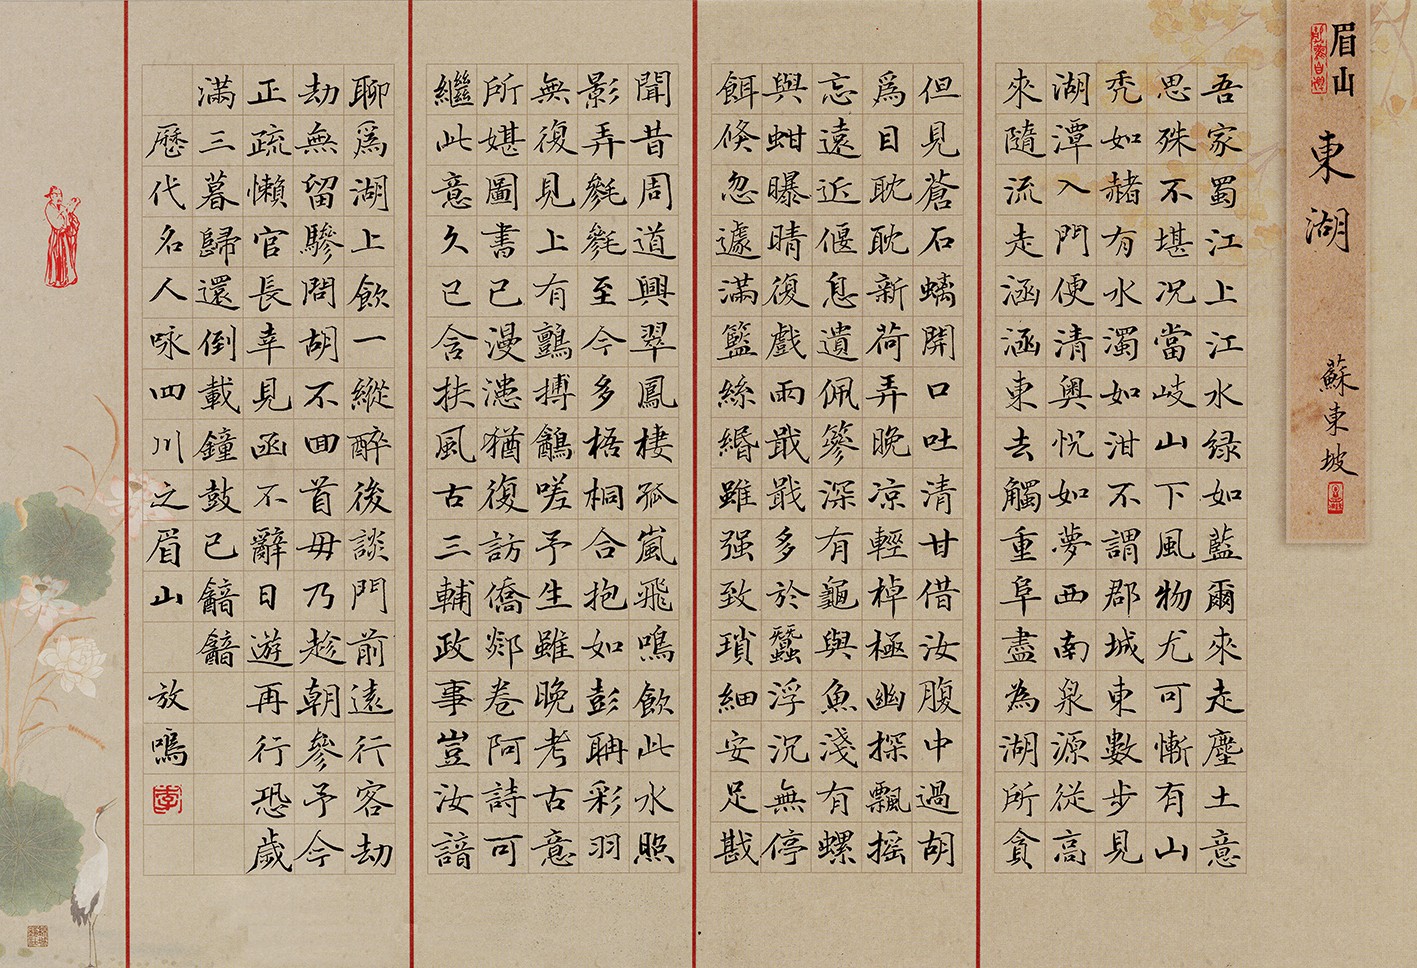 眉山
東湖
蘇東坡
吾家蜀江上江水绿如藍爾來走塵土意
思殊不堪况當岐山下風物尤可慚有山
秃如赭有水濁如泔不謂郡城東數步見
湖潭入門便清奥怳如夢西南泉源從高
來隨流走涵涵東去觸重阜盡為湖所貪
但見蒼石螭開口吐清甘借汝腹中過胡
爲目耽耽新荷弄晚凉輕棹極幽探飄摇
忘遠近偃息遺佩篸深有龜與魚淺有螺
與蚶曝晴復戲雨戢戢多於蠶浮沉無停
餌倏忽遽滿籃絲緡雖强致瑣細安足戡
聞昔周道興翠鳳棲孤嵐飛鳴飲此水照
影弄毿毿至今多梧桐合抱如彭聃彩羽
無復見上有鸇搏鵮嗟予生雖晚考古意
所媅圖書已漫漶猶復訪僑郯卷阿詩可
繼此意久已含扶風古三輔政事豈汝諳
聊爲湖上飲一縱醉後談門前遠行客劫
劫無留驂問胡不回首毋乃趁朝參予今
正疏懶官長幸見函不辭日遊再行恐歲
滿三暮歸還倒載鐘鼓已韽韽
歷代名人咏四川之眉山 放鳴